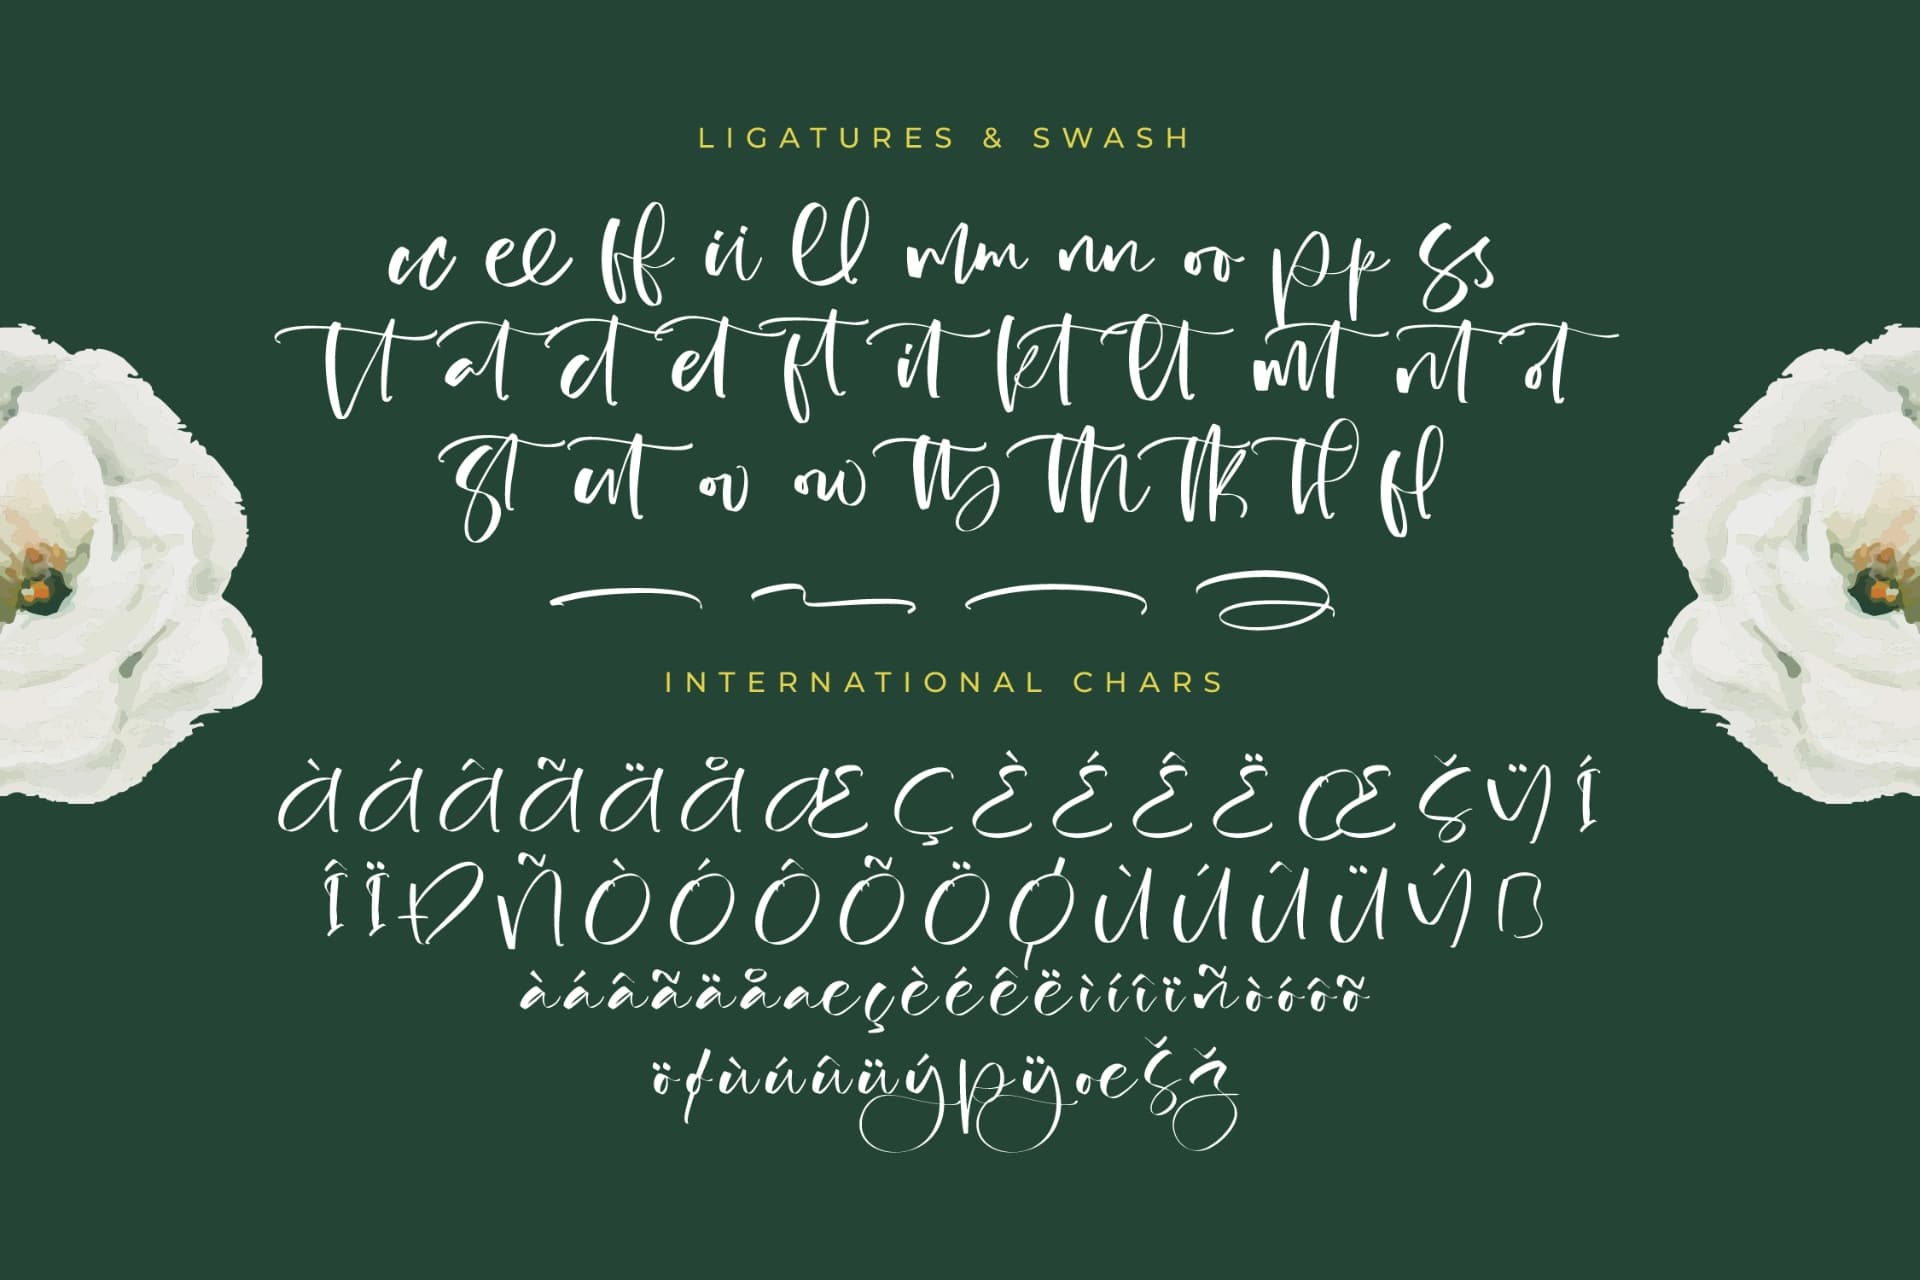 LIGATURES & SWASH
cc ee ff ii ll mm nn oo pp ss
tt at ct et ft it pt lt mt nt ot
st ut ov ow tty th tk tl fl
INTERNATIONAL CHARS
ÀÁÂÃÄÅÆÇÈÉÊËŒŠŸÍ
ÎÏÐÑÒÓÔÕÖØÙÚÛÜÝß
àáâãäåæçèéêëìíîïñòóôõ
öøùúûüýþÿœšž